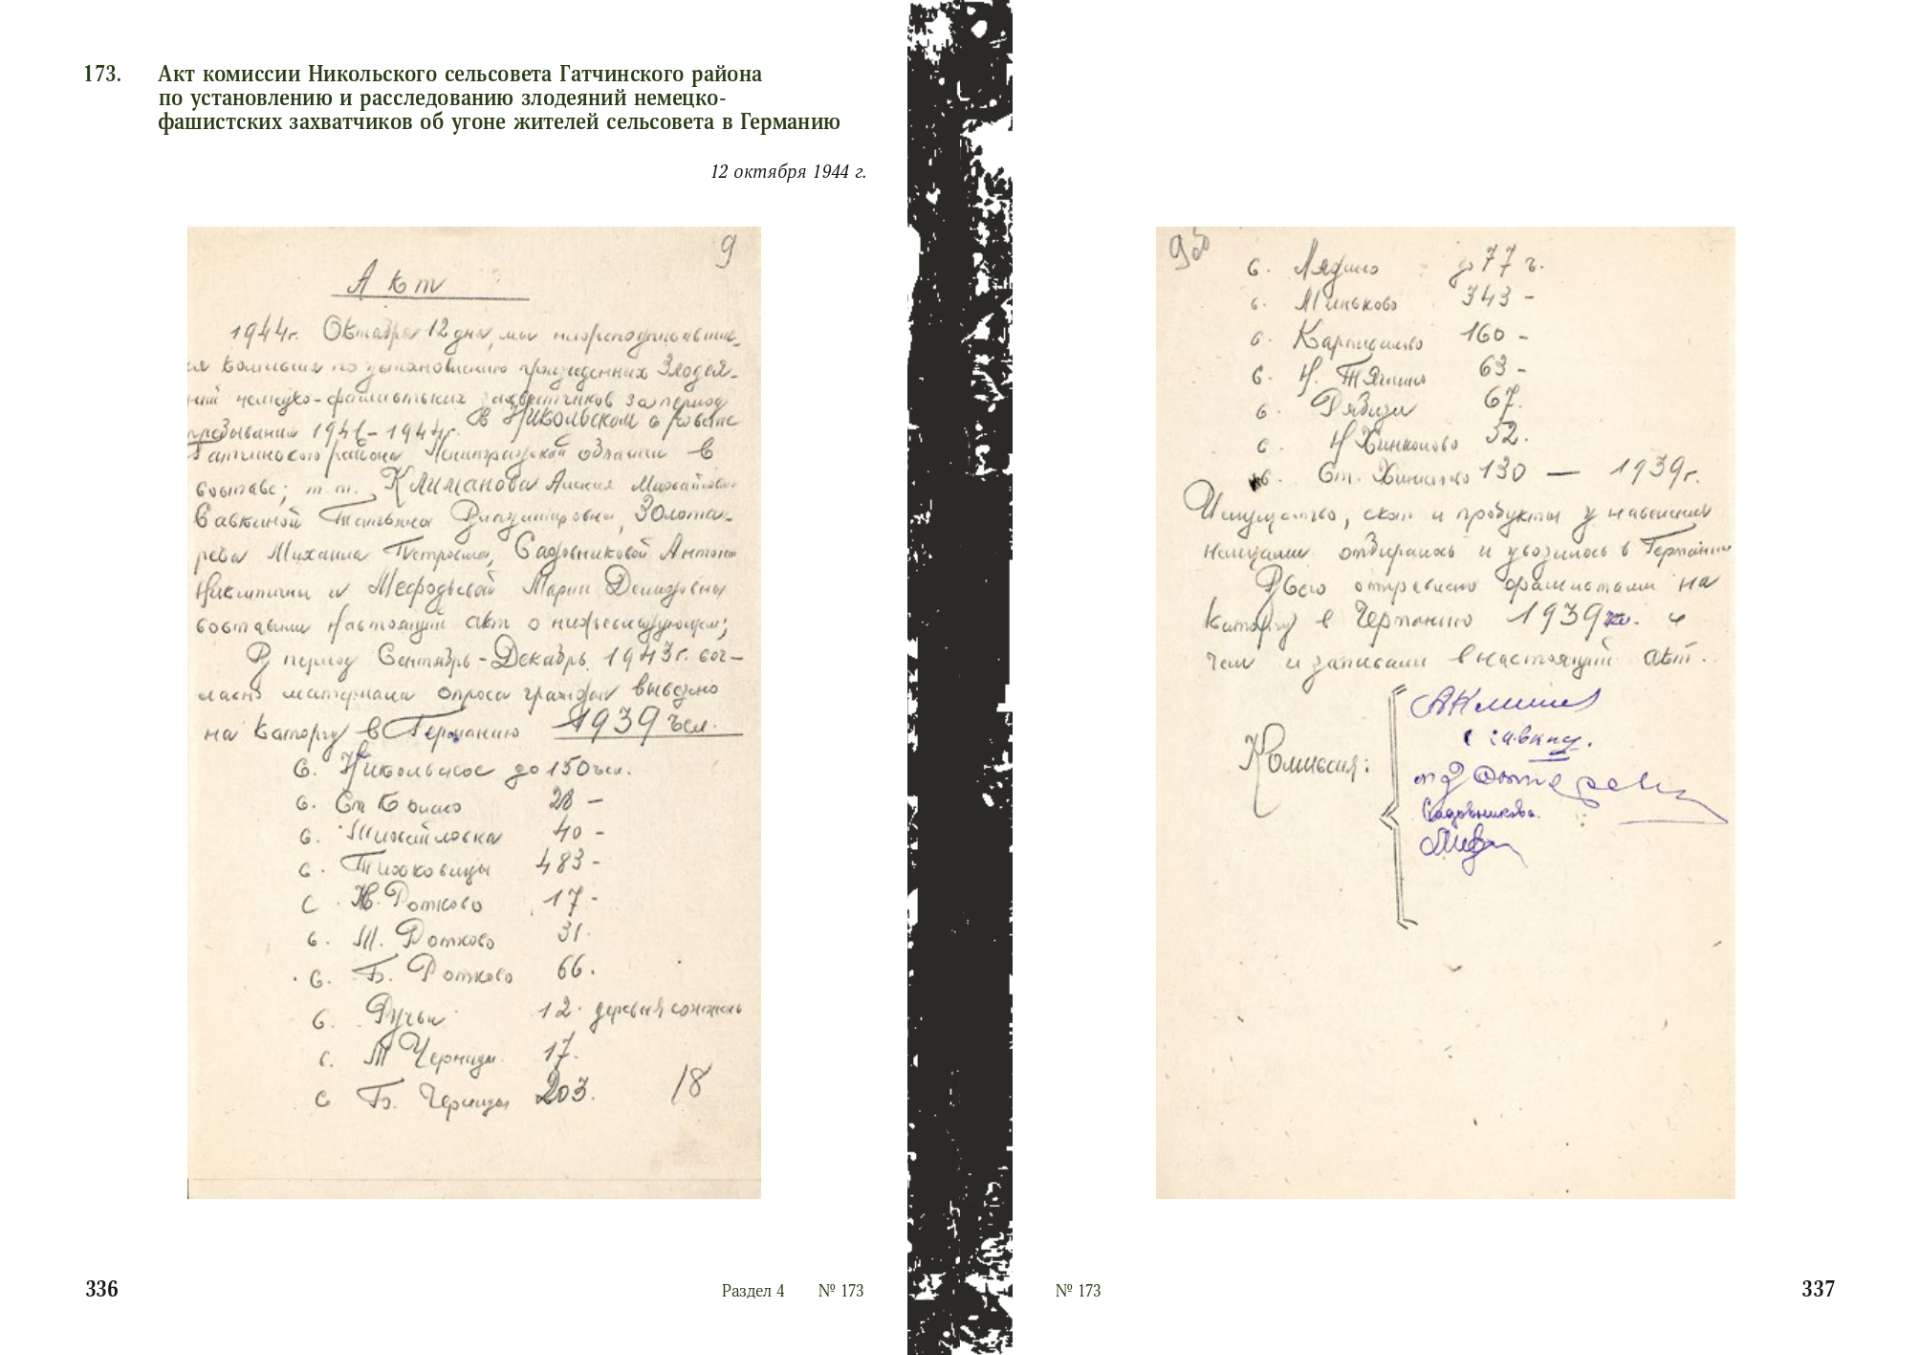 173. Акт комиссии Никольского сельсовета Гатчинского района
по установлению и расследованию злодеяний немецко-
фашистских захватчиков об угоне жителей сельсовета в Германию
12 октября 1944 г.
9
Акт
1944г. Октября 12 дня, мы нижеподписавшие-
ся комиссия по установлению Злодея-
ний немецко-фашистских захватчиков за период
пребывания 1941-1944г. В Никольском с/совете
Гатчинского района Ленинградской области в
составе; т.т. Климанова
Савкиной Татьяна Владимировна, Золота-
рева Михаила Петровича, Садовниковой Антонины
Никитичны и Мефодьевой Марии Демидовны
составили настоящий акт о нижеследующем;
В период Сентябрь-Декабрь 1943г. сог-
ласно материала опроса граждан вывезено
на каторгу в Германию 1939 чел.
с. Никольское до 150 чел.
с. 28 -
с. Михайловка 40 -
с. Тихковицы 483 -
с. Н. Ротково 17 -
с. М. Ротково 31.
с. Б. Ротково 66.
с. Ручьи 12. деревня сожжена
с. М Черницы 17.
с Б. Черницы 203.
18
с. Лядино до 77 ч.
с. Миньково 343 -
с. 160 -
с. Н. 63 -
с. Рябизи 67.
с. Н Хинколово 52.
с. Ст. Хинколово 130 — 1939г.
Имущество, скот и продукты у населения
немцами отбиралось и увозилось в Германию
Всего отправлено фашистами на
каторгу в Германию 1939 чел. о
чем и записали в настоящий акт.
Комиссия:
Садовникова
336
Раздел 4 № 173
№ 173
337